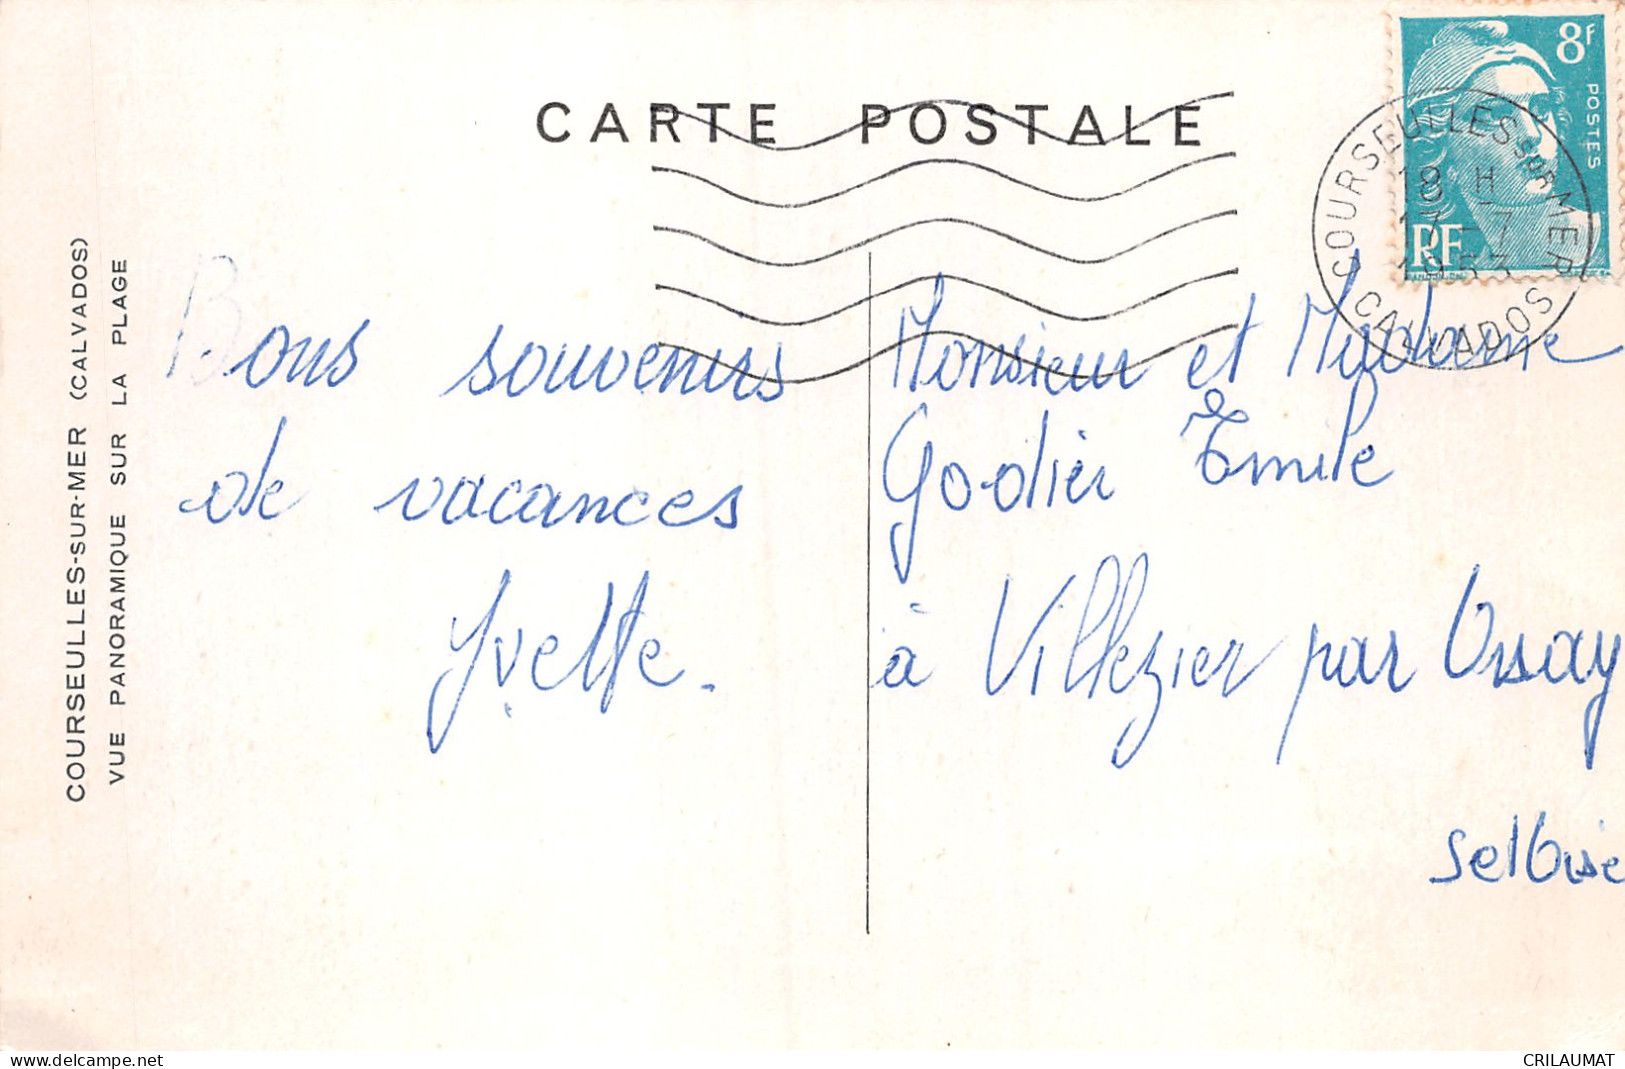 CARTE POSTALE
8F
POSTES
RF
COURSEULLES SUR MER
18 H
CALVADOS
COURSEULLES-SUR-MER (CALVADOS)
VUE PANORAMIQUE SUR LA PLAGE
Bons souvenirs
de vacances
Yvette.
Monsieur et Madame
Godier Emile
à Villezier par Orsay
S et Oise
delcampe.net
CRILAUMAT